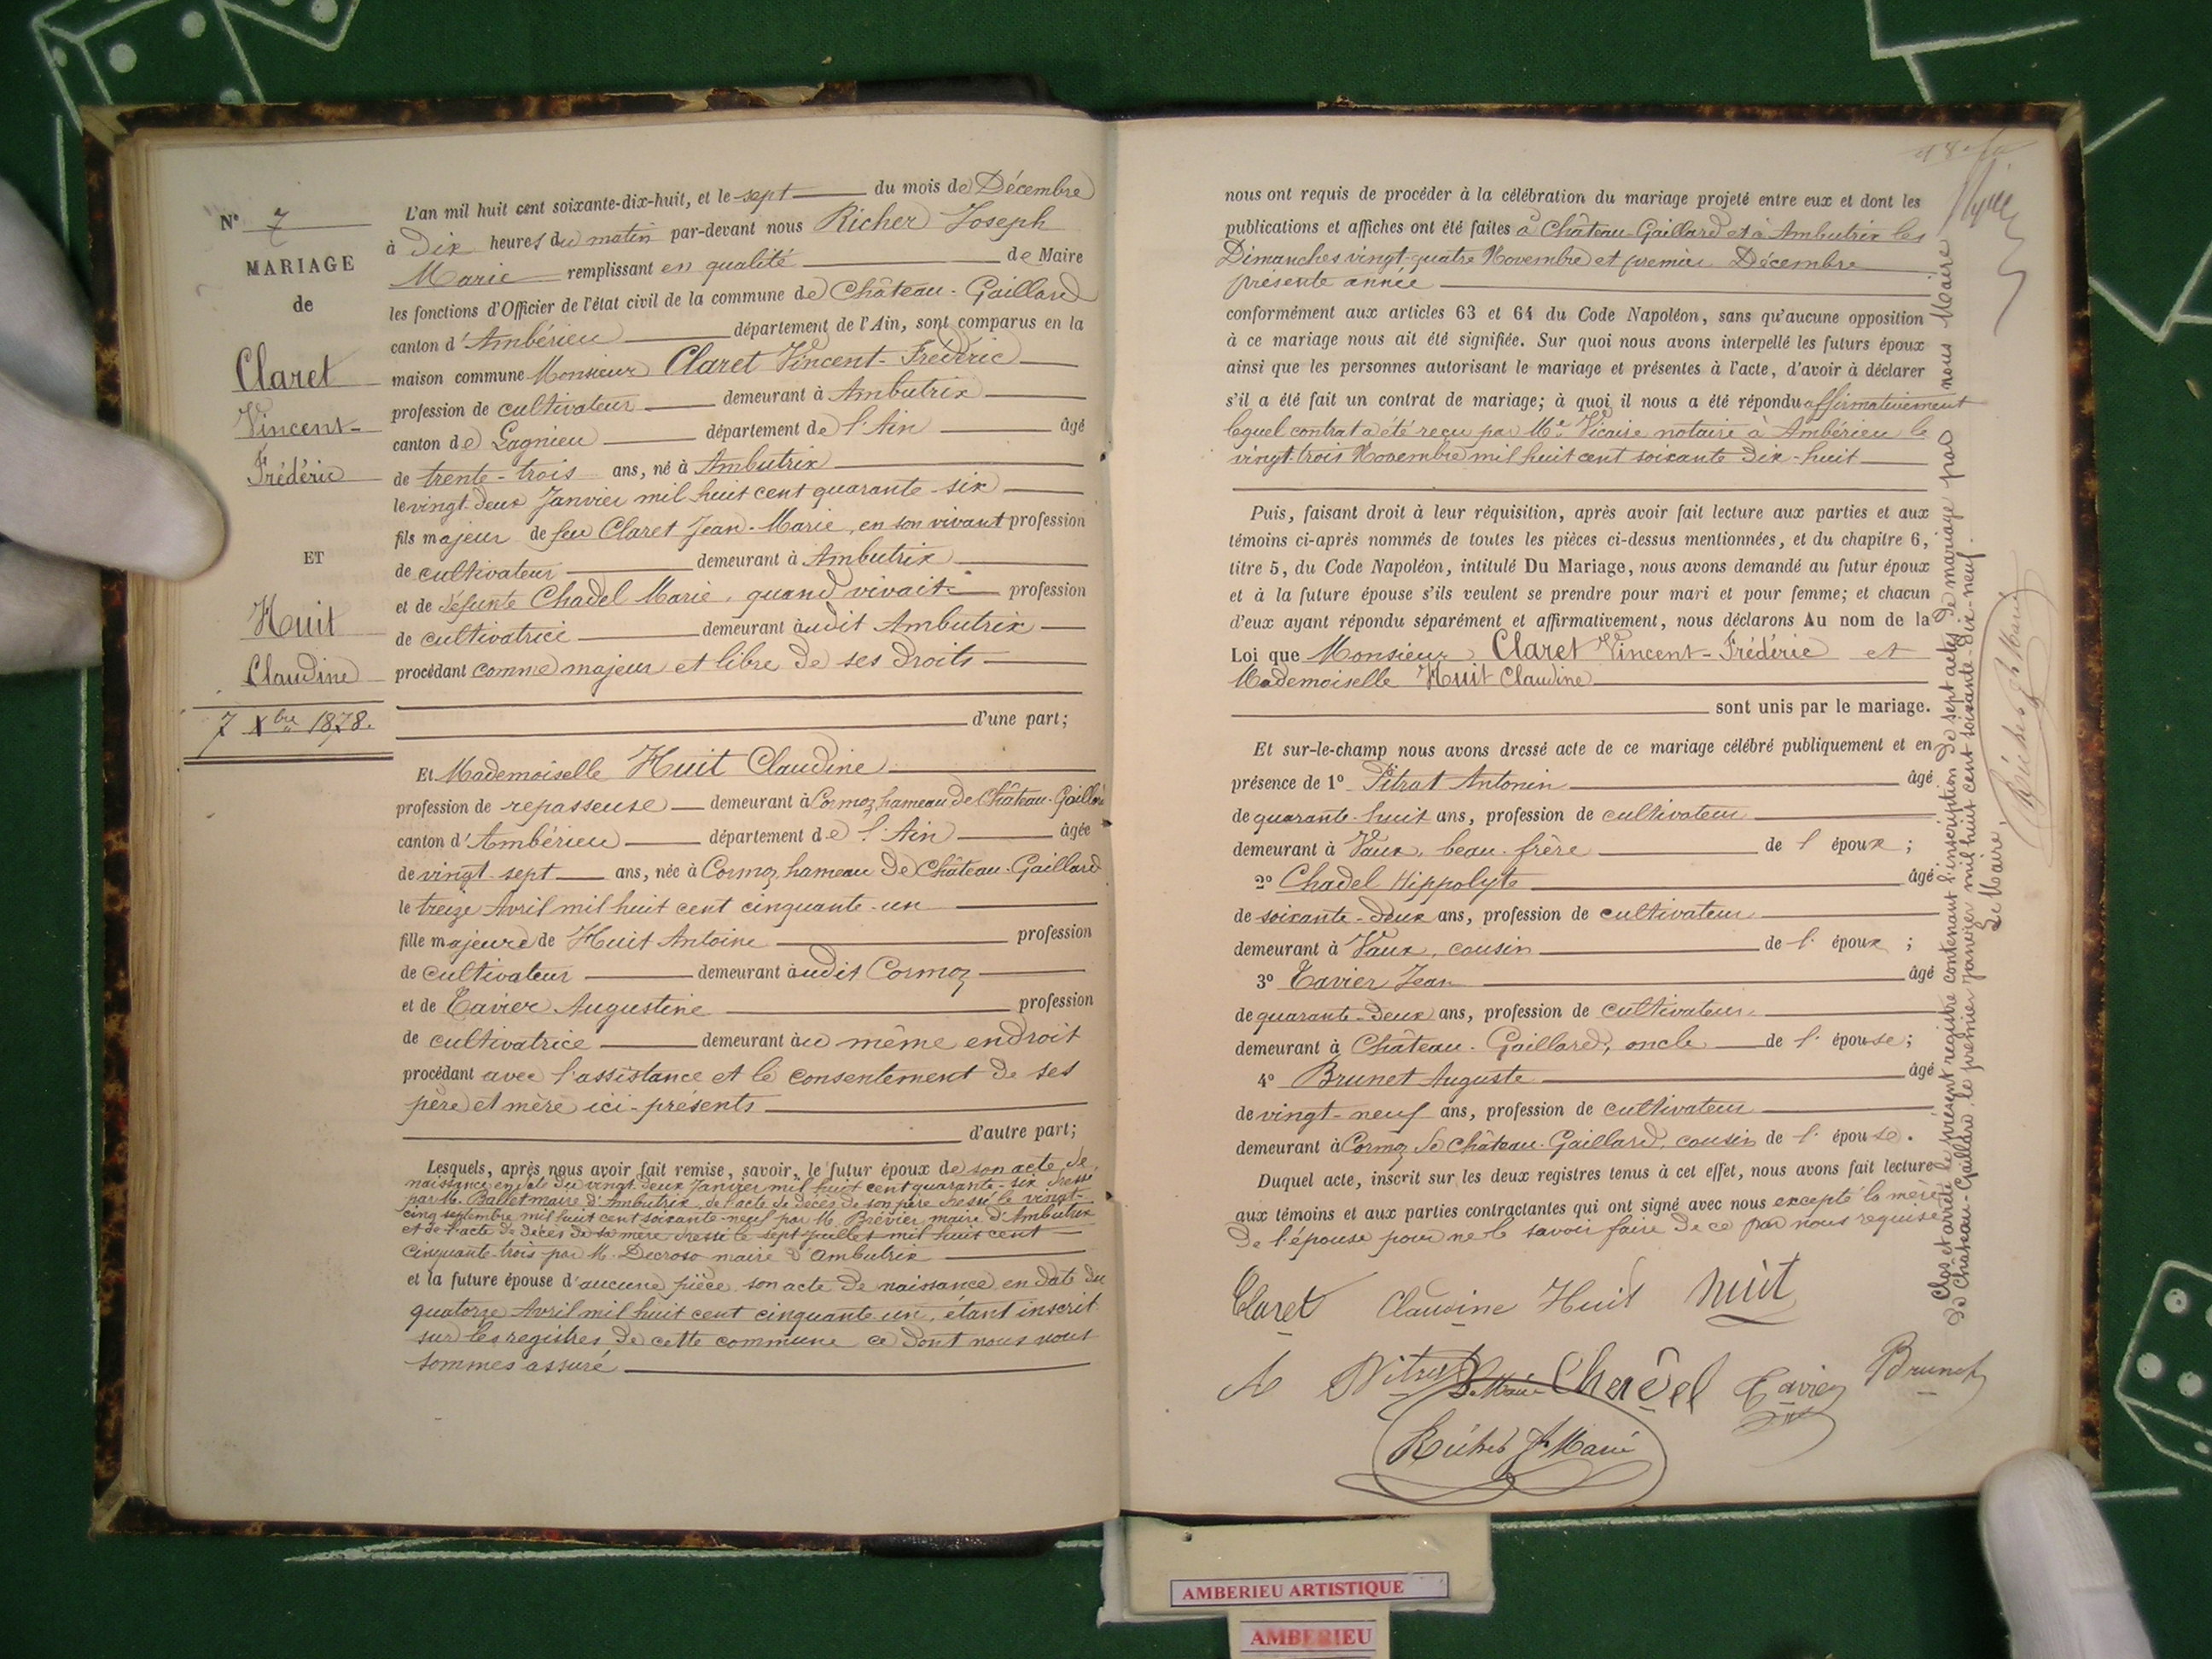 N° 7
MARIAGE
de
Claret
Vincent-
Frédéric
ET
Huit
Claudine
7 Xbre 1878.
L'an mil huit cent soixante-dix-huit, et le sept du mois de Décembre
à Dix heures du matin par-devant nous Richer Joseph
Marie remplissant en qualité de Maire
les fonctions d'Officier de l'état civil de la commune de Château-Gaillard
canton d'Ambérieu département de l'Ain, sont comparus en la
maison commune Monsieur Claret Vincent-Frédéric
profession de cultivateur demeurant à Ambutrix
canton de Lagnieu département de l'Ain âgé
de trente-trois ans, né à Ambutrix
le vingt-deux Janvier mil huit cent quarante-six
fils majeur de feu Claret Jean-Marie, en son vivant profession
de cultivateur demeurant à Ambutrix
et de défunte Chadel Marie, quand vivait profession
de cultivatrice demeurant audit Ambutrix
procédant comme majeur et libre de ses droits
d'une part;
Et Mademoiselle Huit Claudine
profession de repasseuse demeurant à Cormoz, hameau de Château-Gaillard
canton d'Ambérieu département de l'Ain âgée
de vingt-sept ans, née à Cormoz hameau de Château-Gaillard
le treize Avril mil huit cent cinquante-un
fille majeure de Huit Antoine profession
de cultivateur demeurant audit Cormoz
et de Tavier Augustine profession
de cultivatrice demeurant au même endroit
procédant avec l'assistance et le consentement de ses
père et mère ici-présents
d'autre part;
Lesquels, après nous avoir fait remise, savoir, le futur époux de son acte de
naissance en date du vingt-deux Janvier mil huit cent quarante-six dressé
par M. Ballet maire d'Ambutrix, de l'acte de décès de son père dressé le vingt-
cinq septembre mil huit cent soixante-neuf par M. Brévier maire d'Ambutrix
et de l'acte de décès de sa mère dressé le sept Juillet mil huit cent
cinquante-trois par M. Decroso maire d'Ambutrix
et la future épouse d'aucune pièce son acte de naissance en date du
quatorze Avril mil huit cent cinquante-un, étant inscrit
sur les registres de cette commune ce dont nous nous
sommes assuré
nous ont requis de procéder à la célébration du mariage projeté entre eux et dont les
publications et affiches ont été faites à Château-Gaillard et à Ambutrix les
Dimanches vingt-quatre Novembre et premier Décembre
présente année
conformément aux articles 63 et 64 du Code Napoléon, sans qu'aucune opposition
à ce mariage nous ait été signifiée. Sur quoi nous avons interpellé les futurs époux
ainsi que les personnes autorisant le mariage et présentes à l'acte, d'avoir à déclarer
s'il a été fait un contrat de mariage; à quoi il nous a été répondu affirmativement
lequel contrat a été reçu par Me Vicaire notaire à Ambérieu le
vingt-trois Novembre mil huit cent soixante dix-huit
Puis, faisant droit à leur réquisition, après avoir fait lecture aux parties et aux
témoins ci-après nommés de toutes les pièces ci-dessus mentionnées, et du chapitre 6,
titre 5, du Code Napoléon, intitulé Du Mariage, nous avons demandé au futur époux
et à la future épouse s'ils veulent se prendre pour mari et pour femme; et chacun
d'eux ayant répondu séparément et affirmativement, nous déclarons Au nom de la
Loi que Monsieur Claret Vincent-Frédéric et
Mademoiselle Huit Claudine
sont unis par le mariage.
Et sur-le-champ nous avons dressé acte de ce mariage célébré publiquement et en
présence de 1° Pitrat Antonin âgé
de quarante-huit ans, profession de cultivateur
demeurant à Vaux, beau-frère de l'époux;
2° Chadel Hippolyte âgé
de soixante-deux ans, profession de cultivateur
demeurant à Vaux, cousin de l'époux;
3° Tavier Jean âgé
de quarante-deux ans, profession de cultivateur
demeurant à Château-Gaillard, oncle de l'épouse;
4° Brunet Auguste âgé
de vingt-neuf ans, profession de cultivateur
demeurant à Cormoz de Château-Gaillard, cousin de l'épouse.
Duquel acte, inscrit sur les deux registres tenus à cet effet, nous avons fait lecture
aux témoins et aux parties contractantes qui ont signé avec nous excepté la mère
de l'épouse pour ne le savoir faire de ce par nous requise
Claret Claudine Huit huit
A Pitrat Le Maire Chadel Tavier Brunet
Richer Jh Marie
Clos et arrêté le présent registre contenant l'inscription de sept actes de mariage par nous Maire
de Château-Gaillard, le premier Janvier mil huit cent soixante-dix-neuf.
Le Maire,
Richer Jh Marie
AMBERIEU ARTISTIQUE
AMBERIEU